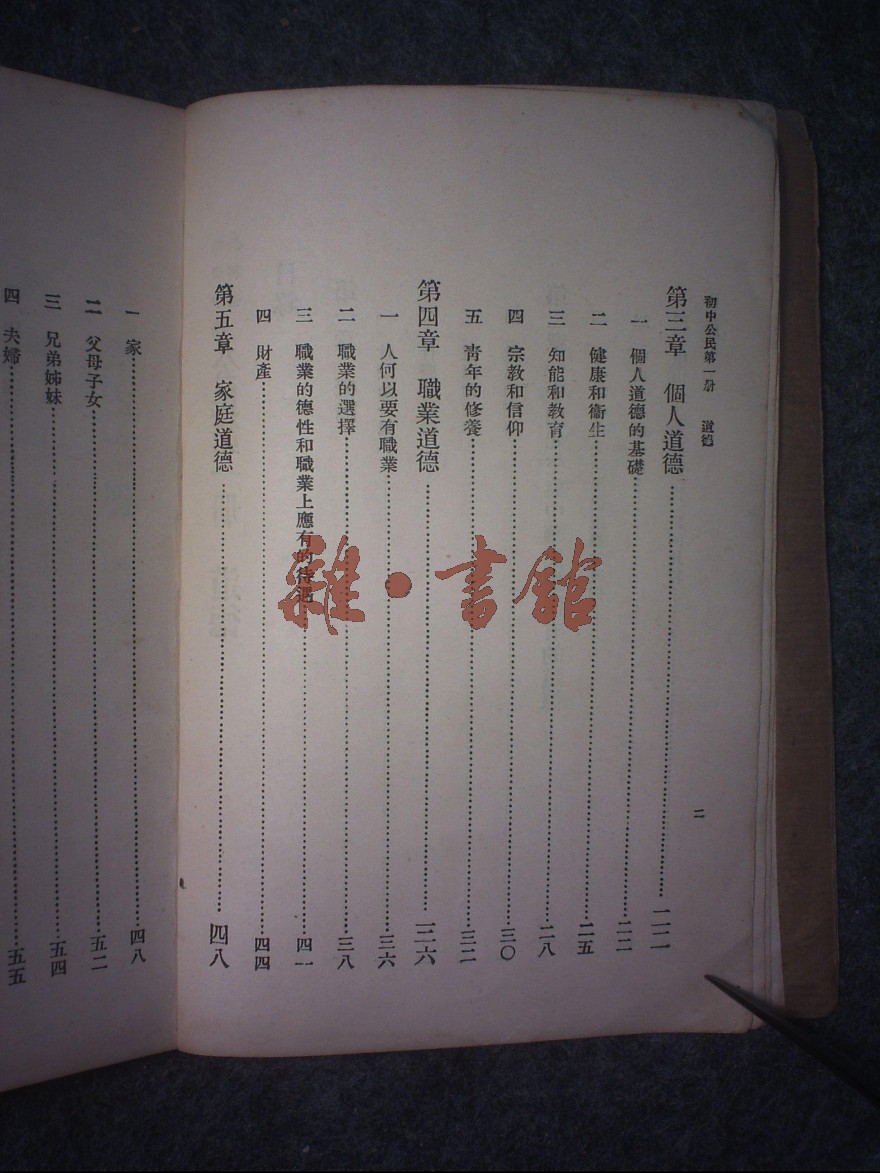 初中公民第一册　道德
二
第三章　個人道德……二二
一　個人道德的基礎……二二
二　健康和衞生……二五
三　知能和教育……二八
四　宗教和信仰……三〇
五　靑年的修養……三二
第四章　職業道德……三六
一　人何以要有職業……三六
二　職業的選擇……三八
三　職業的德性和職業上應有的待遇……四一
四　財產……四四
第五章　家庭道德……四八
一　家……四八
二　父母子女……五二
三　兄弟姊妹……五四
四　夫婦……五五
雜·書館